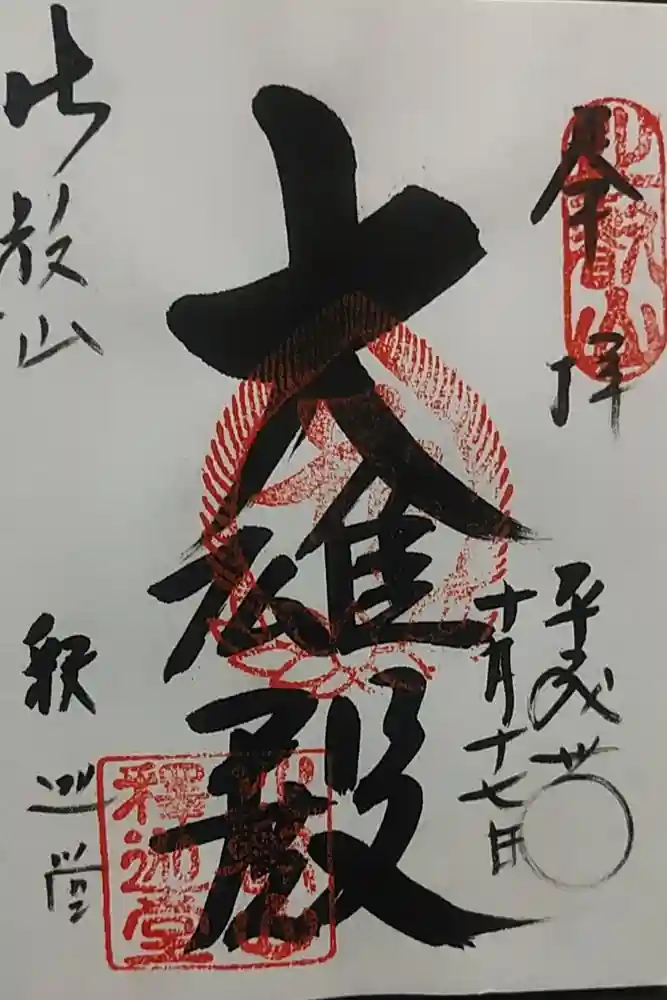 奉拝
平成卅〇
十月十七日
大雄殿
比叡山
釈迦堂
比叡山
釋迦堂